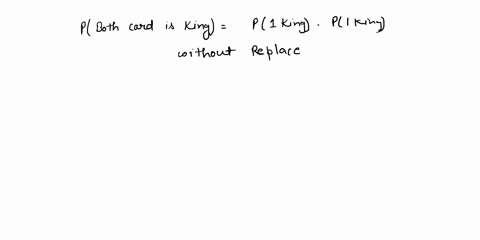 P( Both card is King) = P( 1 King) . P( 1 King)
without Replace